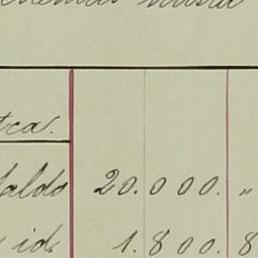 tca.
Saldo 20.000. "
id. 1.800. 8